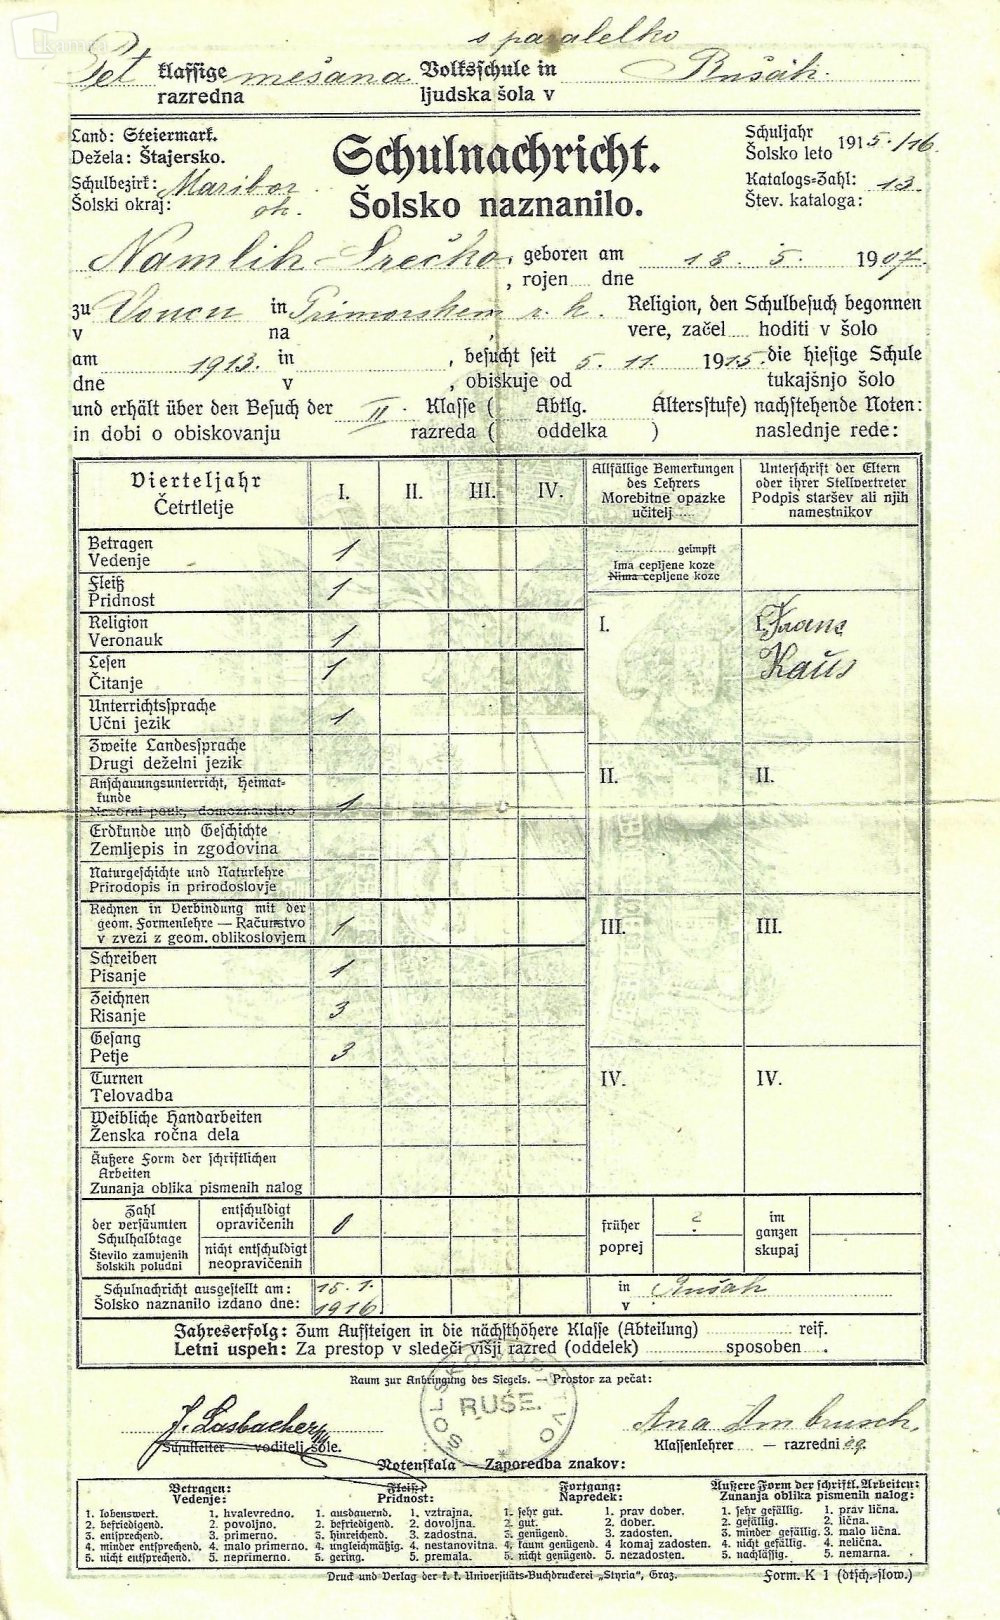 s paralelko
Pet klassige mešana Volksschule in Rušah.
razredna ljudska šola v
Land: Steiermark.
Dežela: Štajersko.
Schulbezirk: Maribor
Šolski okraj: ok.
Schulnachricht.
Šolsko naznanilo.
Schuljahr
Šolsko leto 1915./16.
Katalogs-Zahl: 13.
Štev. kataloga:
Namlih Srečko, geboren am 18. 5. 1907.
, rojen dne
zu in Primorskem r. k. Religion, den Schulbesuch begonnen
v na vere, začel hoditi v šolo
am 1913. in , besucht seit 5. 11. 1915. die hiesige Schule
dne v , obiskuje od tukajšnjo šolo
und erhält über den Besuch der II. Klasse ( Abtlg. Altersstufe) nachstehende Noten:
in dobi o obiskovanju razreda ( oddelka ) naslednje rede:
Vierteljahr
Četrtletje
I. II. III. IV.
Allfällige Bemerkungen
des Lehrers
Morebitne opazke
učitelj
Unterschrift der Eltern
oder ihrer Stellvertreter
Podpis staršev ali njih
namestnikov
Betragen
Vedenje 1
geimpft
Ima cepljene koze
Nima cepljene koze
Fleiß
Pridnost 1
Religion
Veronauk 1
I. I. Franc
Lesen
Čitanje 1
Kaus
Unterrichtssprache
Učni jezik 1
Zweite Landessprache
Drugi deželni jezik
II. II.
Anschauungsunterricht, Heimat-
kunde
Nazorni pouk, domoznanstvo 1
Erdkunde und Geschichte
Zemljepis in zgodovina
Naturgeschichte und Naturlehre
Prirodopis in prirodoslovje
Rechnen in Verbindung mit der
geom. Formenlehre — Računstvo
v zvezi z geom. oblikoslovjem 1
III. III.
Schreiben
Pisanje 1
Zeichnen
Risanje 3
Gesang
Petje 3
Turnen
Telovadba
IV. IV.
Weibliche Handarbeiten
Ženska ročna dela
Äußere Form der schriftlichen
Arbeiten
Zunanja oblika pismenih nalog
Zahl
der versäumten
Schulhalbtage
Število zamujenih
šolskih poludni
entschuldigt
opravičenih 0
nicht entschuldigt
neopravičenih
früher
poprej 2
im
ganzen
skupaj
Schulnachricht ausgestellt am: 15. 1. in Rušah
Šolsko naznanilo izdano dne: 1916. v
Jahreserfolg: Zum Aufsteigen in die nächsthöhere Klasse (Abteilung) reif.
Letni uspeh: Za prestop v sledeči višji razred (oddelek) sposoben .
Raum zur Anbringung des Siegels. — Prostor za pečat:
ŠOLSKO VODSTVO
RUŠE.
J. Lasbacher Ana Ambrusch.
Schulleiter voditelj šole. Klassenlehrer — razredni
Notenskala — Zaporedba znakov:
Betragen:
Vedenje:
1. lobenswert. 1. hvalevredno.
2. befriedigend. 2. povoljno.
3. entsprechend. 3. primerno.
4. minder entsprechend. 4. malo primerno.
5. nicht entsprechend. 5. neprimerno.
Fleiß:
Pridnost:
1. ausdauernd. 1. vztrajna.
2. befriedigend. 2. dovoljna.
3. hinreichend. 3. zadostna.
4. ungleichmäßig. 4. nestanovitna.
5. gering. 5. premala.
Fortgang:
Napredek:
1. sehr gut. 1. prav dober.
2. gut. 2. dober.
3. genügend. 3. zadosten.
4. kaum genügend. 4 komaj zadosten.
5. nicht genügend. 5. nezadosten.
Äußere Form der schriftl. Arbeiten:
Zunanja oblika pismenih nalog:
1. sehr gefällig. 1. prav lična.
2. gefällig. 2. lična.
3. minder gefällig. 3. malo lična.
4. nicht gefällig. 4. nelična.
5. nachlässig. 5. nemarna.
Druck und Verlag der k. k. Universitäts-Buchdruckerei „Styria“, Graz. Form. K 1 (dtsch.-slow.)